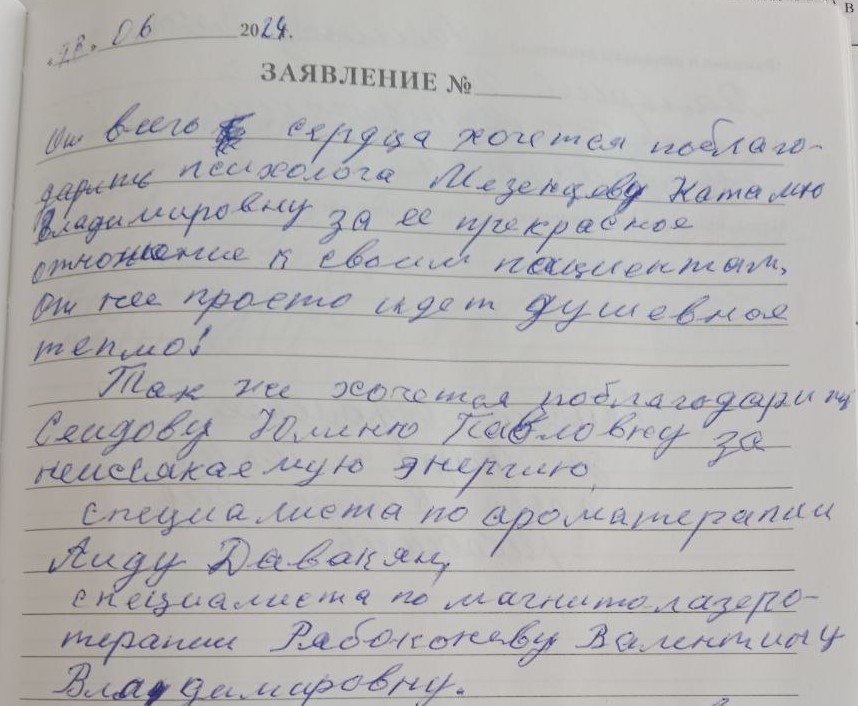 18. 06 2024.
ЗАЯВЛЕНИЕ №
От всего сердца хочется поблаго-
дарить психолога Мезенцеву Наталию
Владимировну за ее прекрасное
отношение к своим пациентам,
от нее просто идет душевное
тепло!
Так же хочется поблагодарить
Сеидову Юлию Павловну за
неиссякаемую энергию,
специалиста по ароматерапии
Аиду Давакян,
специалиста по магнитолазеро-
терапии Рябоконеву Валентину
Владимировну.